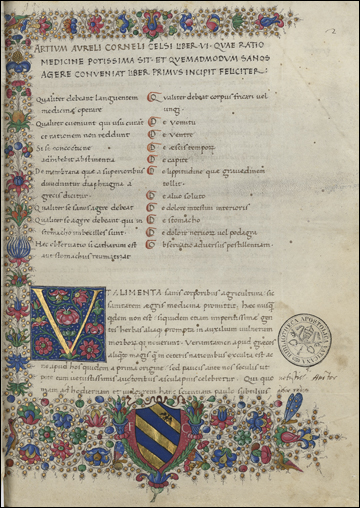 2
ARTIVM AVRELI CORNELI CELSI LIBER·VI· QVAE RATIO
MEDICINE POTISSIMA SIT·ET QVEMADMODVM SANOS
AGERE CONVENIAT LIBER PRIMVS INCIPIT FELICITER:
Qualiter debeant languentem
medicinae operare
Qualiter eveniunt qui usu curat
et rationem non reddunt
Si se concoctione
adimbebat abstinentia
De membrana quae a superioribus
dividuntur diaphragma a
grecis dicitur
Qualiter se sanos agere debeat
Qualiter se agere debeant qui in
stomacho imbecilles sunt
Haec observatio si catharum est
aut stomachus reumatizat
Qualiter debeat corpus fricari vel
ungi
De vomitu
De ventre
De aestis tempore
De capite
De lippitudine quae gravedinem
tollit
De alvo soluto
De dolore intestini interioris
De stomacho
De dolore nervorum vel podagra
Observatio adversus pestilentiam
VT ALIMENTA sanis corporibus agricultura sic
sanitatem aegris medicina promittit, haec nusq
quidem non est: siquidem etiam imperitissimae gen
tes herbas aliaque prompta in auxilium vulnerum
morborumque noverunt. Veruntamen apud grecos
aliquanto magis q in ceteris nationibus exculta est ac
ne apud hos quidem a prima origine sed paucis ante nos seculis ut
pote cum vetustissimus auctor aesculapius celebretur. Qui quo
niam adhuc rudem et vulgarem hanc scientiam paulo subtilius
BIBLIOTHECA APOSTOLICA VATICANA